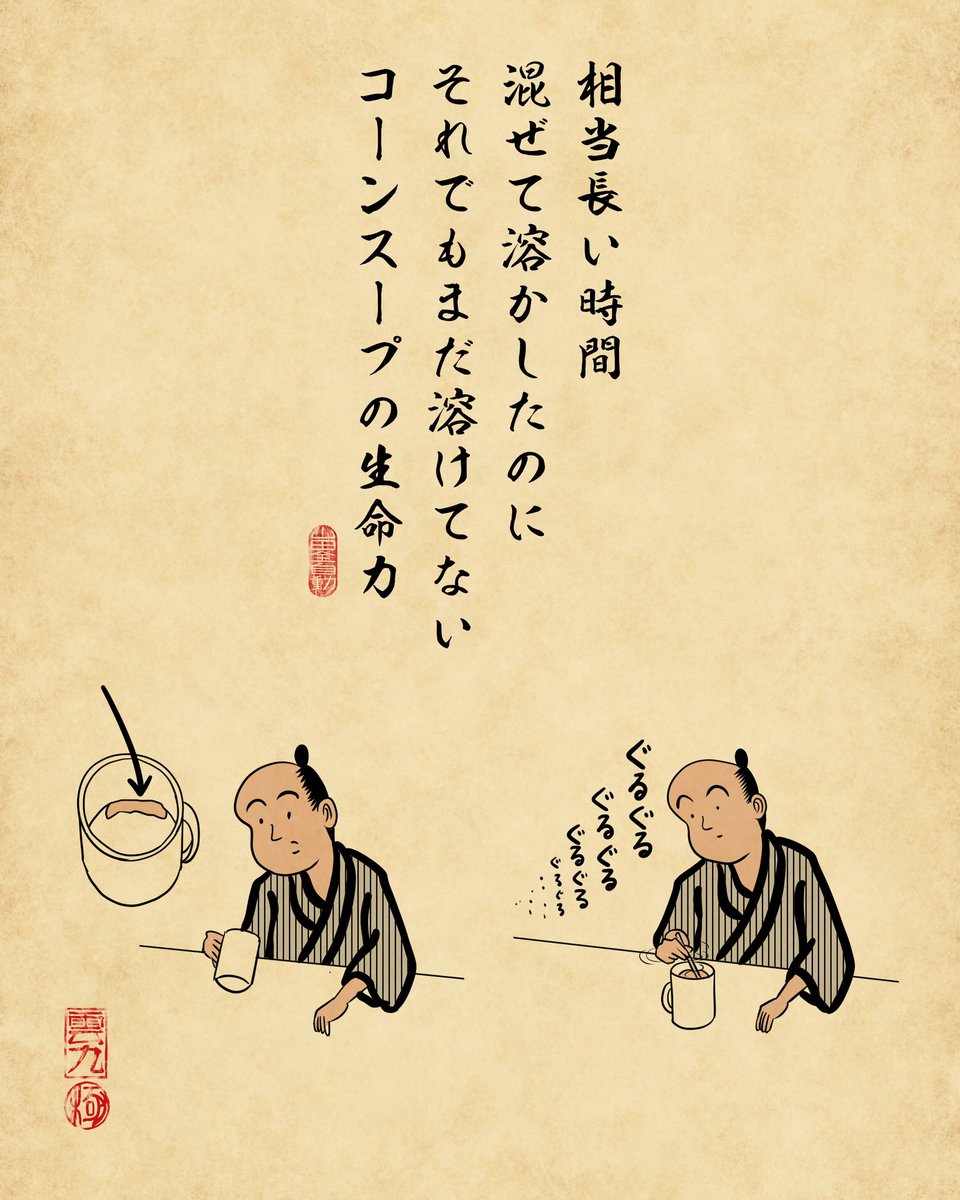 相当長い時間
混ぜて溶かしたのに
それでもまだ溶けてない
コーンスープの生命力
ぐるぐる
ぐるぐる
ぐるぐる
ぐるぐる